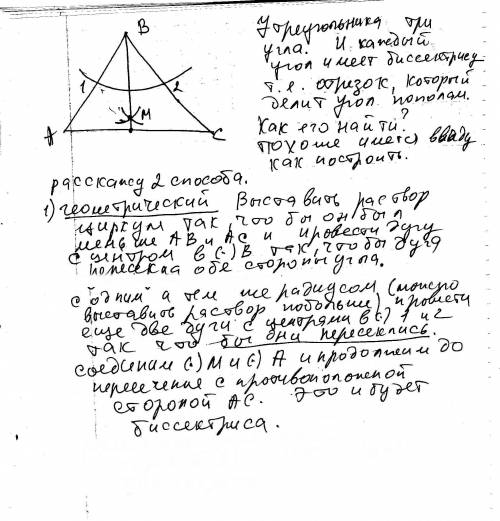 B
1
2
M
A
C
У треугольника три
угла. И каждый
угол имеет биссектрису
т.е. отрезок, который
делит угол пополам.
Как его найти?
Похоже имеется ввиду
как построить.
расскажу 2 способа.
1) геометрический Выставить раствор
циркуля так, что бы он был
меньше AB и AC и провести дугу
с центром в (·) B так, что бы дуга
пересекла обе стороны угла.
с "одним" а тем же радиусом (можно
выставить раствор побольше) провести
еще две дуги с центрами в (·) 1 и 2
так что бы они пересеклись.
соединим (·) M и (·) A и продолжим до
пересечение с противоположной
стороной AC. Это и будет
биссектриса.